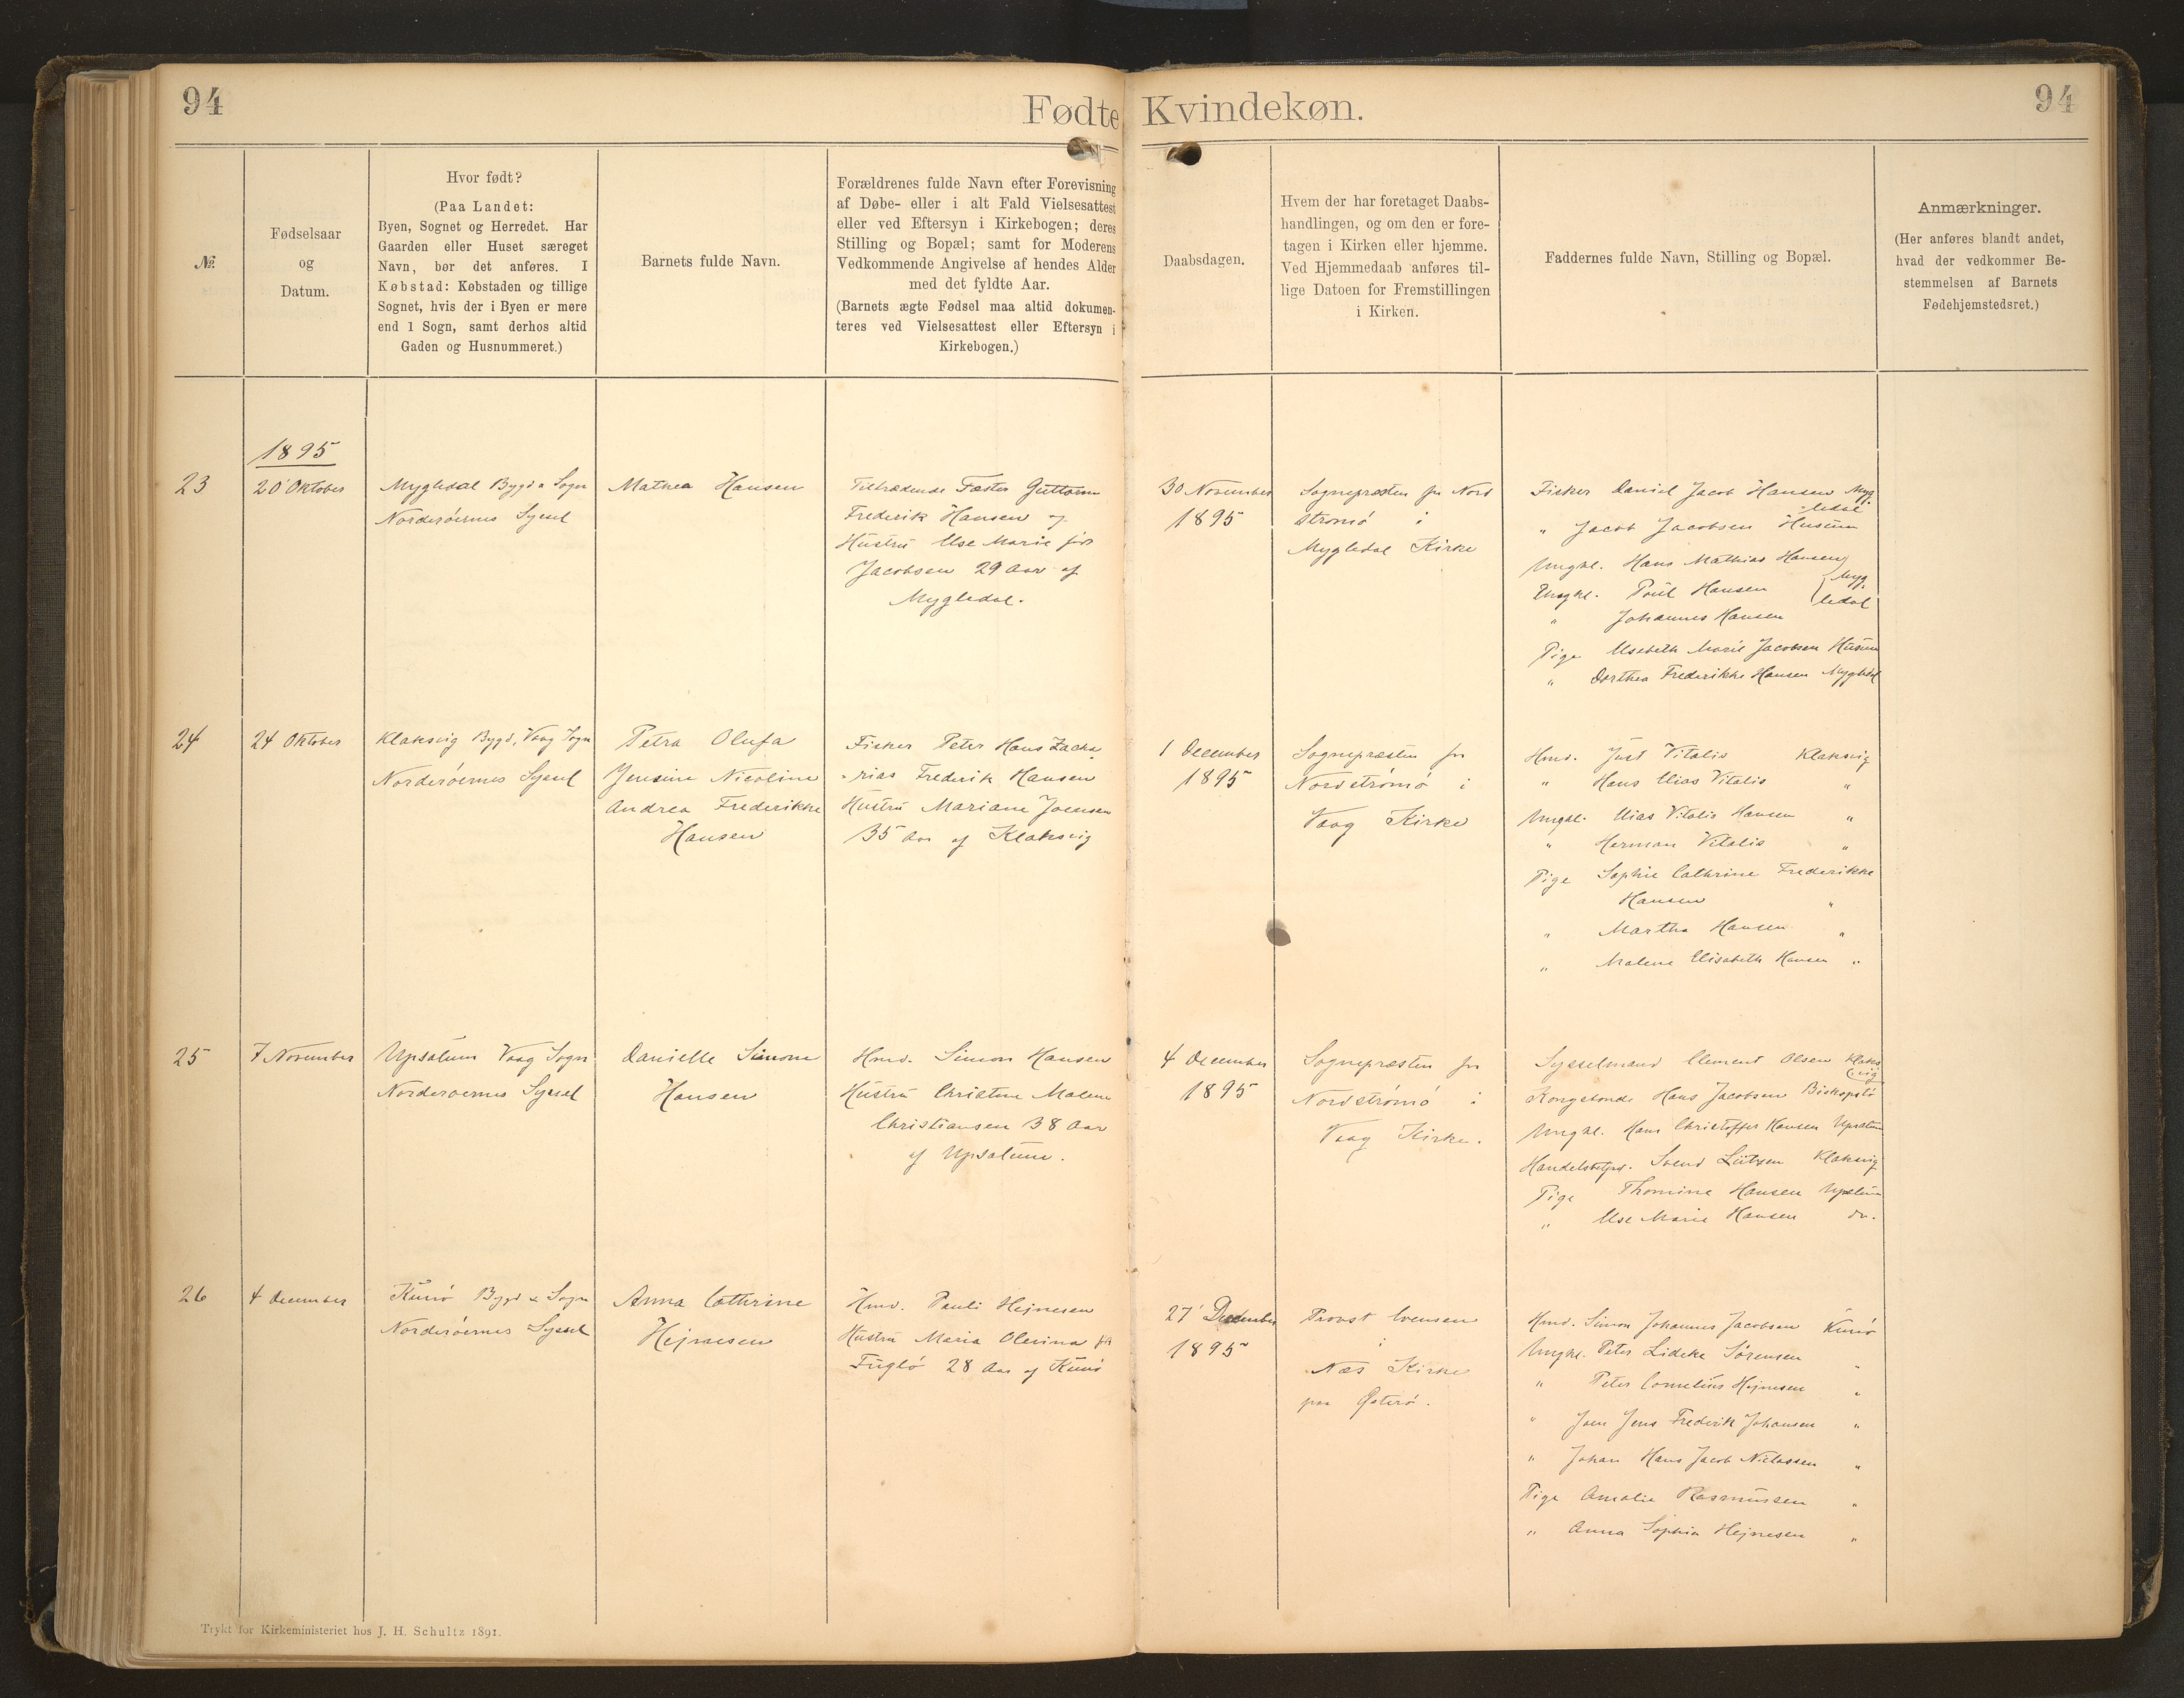 94
Fødte
Kvindekøn.
94
№.
Fødselsaar
og
Datum.
Hvor født?
(Paa Landet:
Byen, Sognet og Herredet. Har
Gaarden eller Huset særeget
Navn, bør det anføres. I
Købstad: Købstaden og tillige
Sognet, hvis der i Byen er mere
end 1 Sogn, samt derhos altid
Gaden og Husnummeret.)
Barnets fulde Navn.
Forældrenes fulde Navn efter Forevisning
af Døbe- eller i alt Fald Vielsesattest
eller ved Eftersyn i Kirkebogen; deres
Stilling og Bopæl; samt for Moderens
Vedkommende Angivelse af hendes Alder
med det fyldte Aar.
(Barnets ægte Fødsel maa altid dokumen-
teres ved Vielsesattest eller Eftersyn i
Kirkebogen.)
Daabsdagen.
Hvem der har foretaget Daabs-
handlingen, og om den er fore-
tagen i Kirken eller hjemme.
Ved Hjemmedaab anføres til-
lige Datoen for Fremstillingen
i Kirken.
Faddernes fulde Navn, Stilling og Bopæl.
Anmærkninger.
(Her anføres blandt andet,
hvad der vedkommer Be-
stemmelsen af Barnets
Fødehjemstedsret.)
1895
23
20 Oktober
Mygledal Bygd & Sogn
Norderöernes Syssel
Mathea Hansen
Tiltrædende Fæster Guttorm
Frederik Hansen og
Hustru Else Marie født
Jacobsen 29 Aar af
Mygledal.
30 November
1895
Sognepræsten for Nord
strømö i
Mygledal Kirke
Fisker Daniel Jacob Hansen Myg
ledal
" Jacob Jacobsen Husum
Ungkl. Hans Mathias Hansen
Ungkl. Poul Hansen Myg
ledal
" Johannes Hansen
Pige Elsebeth Marie Jacobsen Husum
" Dorthea Frederikke Hansen Mygledal
24
24 Oktober
Klaksvig Bygd, Vaag Sogn
Norderöernes Syssel
Petra Olufa
Jensine Nicoline
Andrea Frederikke
Hansen
Fisker Peter Hans Zacha
-rias Frederik Hansen
Hustru Mariane Joensen
35 Aar af Klaksvig
1 December
1895
Sognepræsten for
Nordströmö i
Vaag Kirke
Hmd. Just Vitalis Klaksvig
" Hans Elias Vitalis "
Ungkl. Elias Vitalis Hansen "
" Herman Vitalis "
Pige Sophie Cathrine Frederikke
Hansen "
" Martha Hansen "
" Malene Elisabeth Hansen "
25
7 November
Upsalum Vaag Sogn
Norderöernes Syssel
Danielle Simone
Hansen
Hmd. Simon Hansen
Hustru Christine Malene
Christiansen 38 Aar
af Upsalum.
4 December
1895
Sognepræsten for
Nordströmö i
Vaag Kirke.
Sysselmand Clement Olsen Klaks
vig
Kongsbonde Hans Jacobsen Biskopstö
Ungkl. Hans Christoffer Hansen Upsalum
Handelsbetjnt. Svend Lützen Klaksvig
Pige Thomine Hansen Upsalum
" Else Marie Hansen do.
26
4 December
Kunö Bygd & Sogn
Norderöernes Syssel
Anna Cathrine
Hejnesen
Hmd. Pauli Hejnesen
Hustru Maria Olevina født
Fuglö 28 Aar af Kunö
27 December
1895
Provst Evensen
i
Næs Kirke
paa Østerö.
Hmd. Simon Johannes Jacobsen Kunö
Ungkl. Peter Lideke Sørensen "
" Peter Cornelius Hejnesen "
" Joen Jens Frederik Johansen "
" Johan Hans Jacob Niclassen "
Pige Amalie Rasmussen "
" Anna Sophia Hejnesen "
Trykt for Kirkeministeriet hos J. H. Schultz 1891.